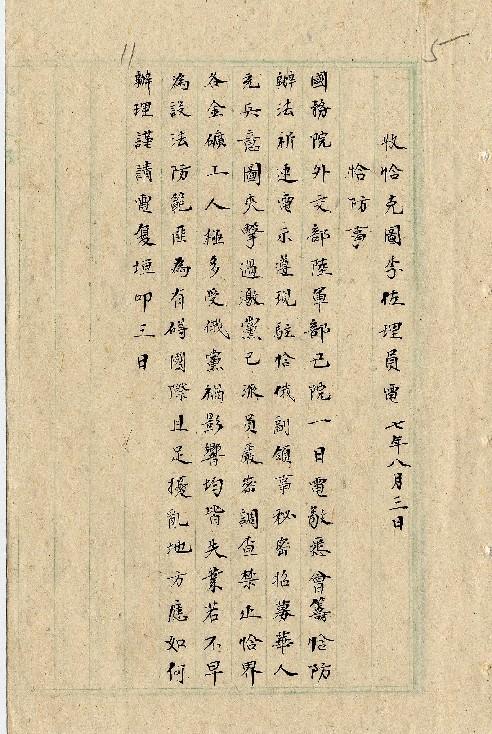 5
11
收恰克圖李佐理員電 七年八月三日
恰防事
國務院外交部陸軍部己院一日電敬悉會籌恰防
辦法祈速電示遵現駐恰俄副領事秘密招募華人
充兵意圖夾擊過激黨已派員嚴密調查禁止恰界
各金礦工人極多受俄黨禍影響均皆失業若不早
為設法防範匪為有碍國際且足擾亂地方應如何
辦理謹請電復垣叩三日